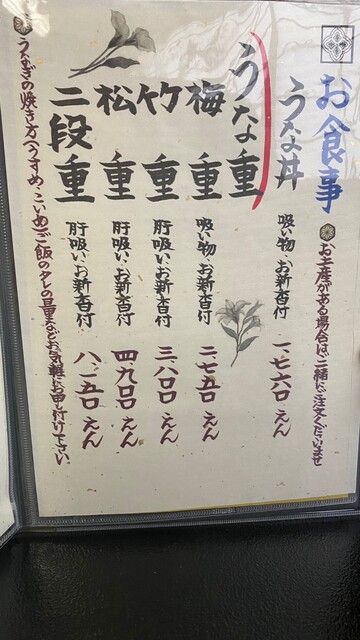 お食事
お土産がある場合はご一緒にご注文くださいませ
うな丼 吸い物、お新香付 一、七六〇えん
うな重
梅重 吸い物、お新香付 二、七五〇えん
竹重 肝吸い、お新香付 三、八〇〇えん
松重 肝吸い、お新香付 四、九〇〇えん
二段重 肝吸い、お新香付 八、一五〇えん
うなぎの焼き方(うすめ、こいめ)ご飯のタレの量などお気軽にお申し付け下さい